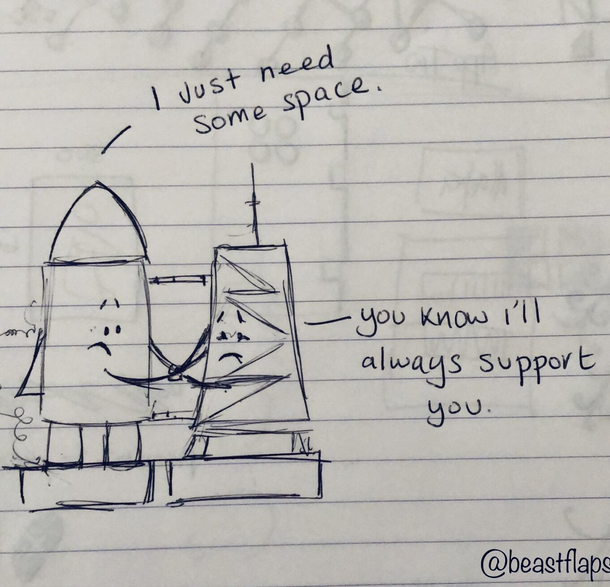 I Just need
some space.
you know i'll
always support
you.
@beastflaps